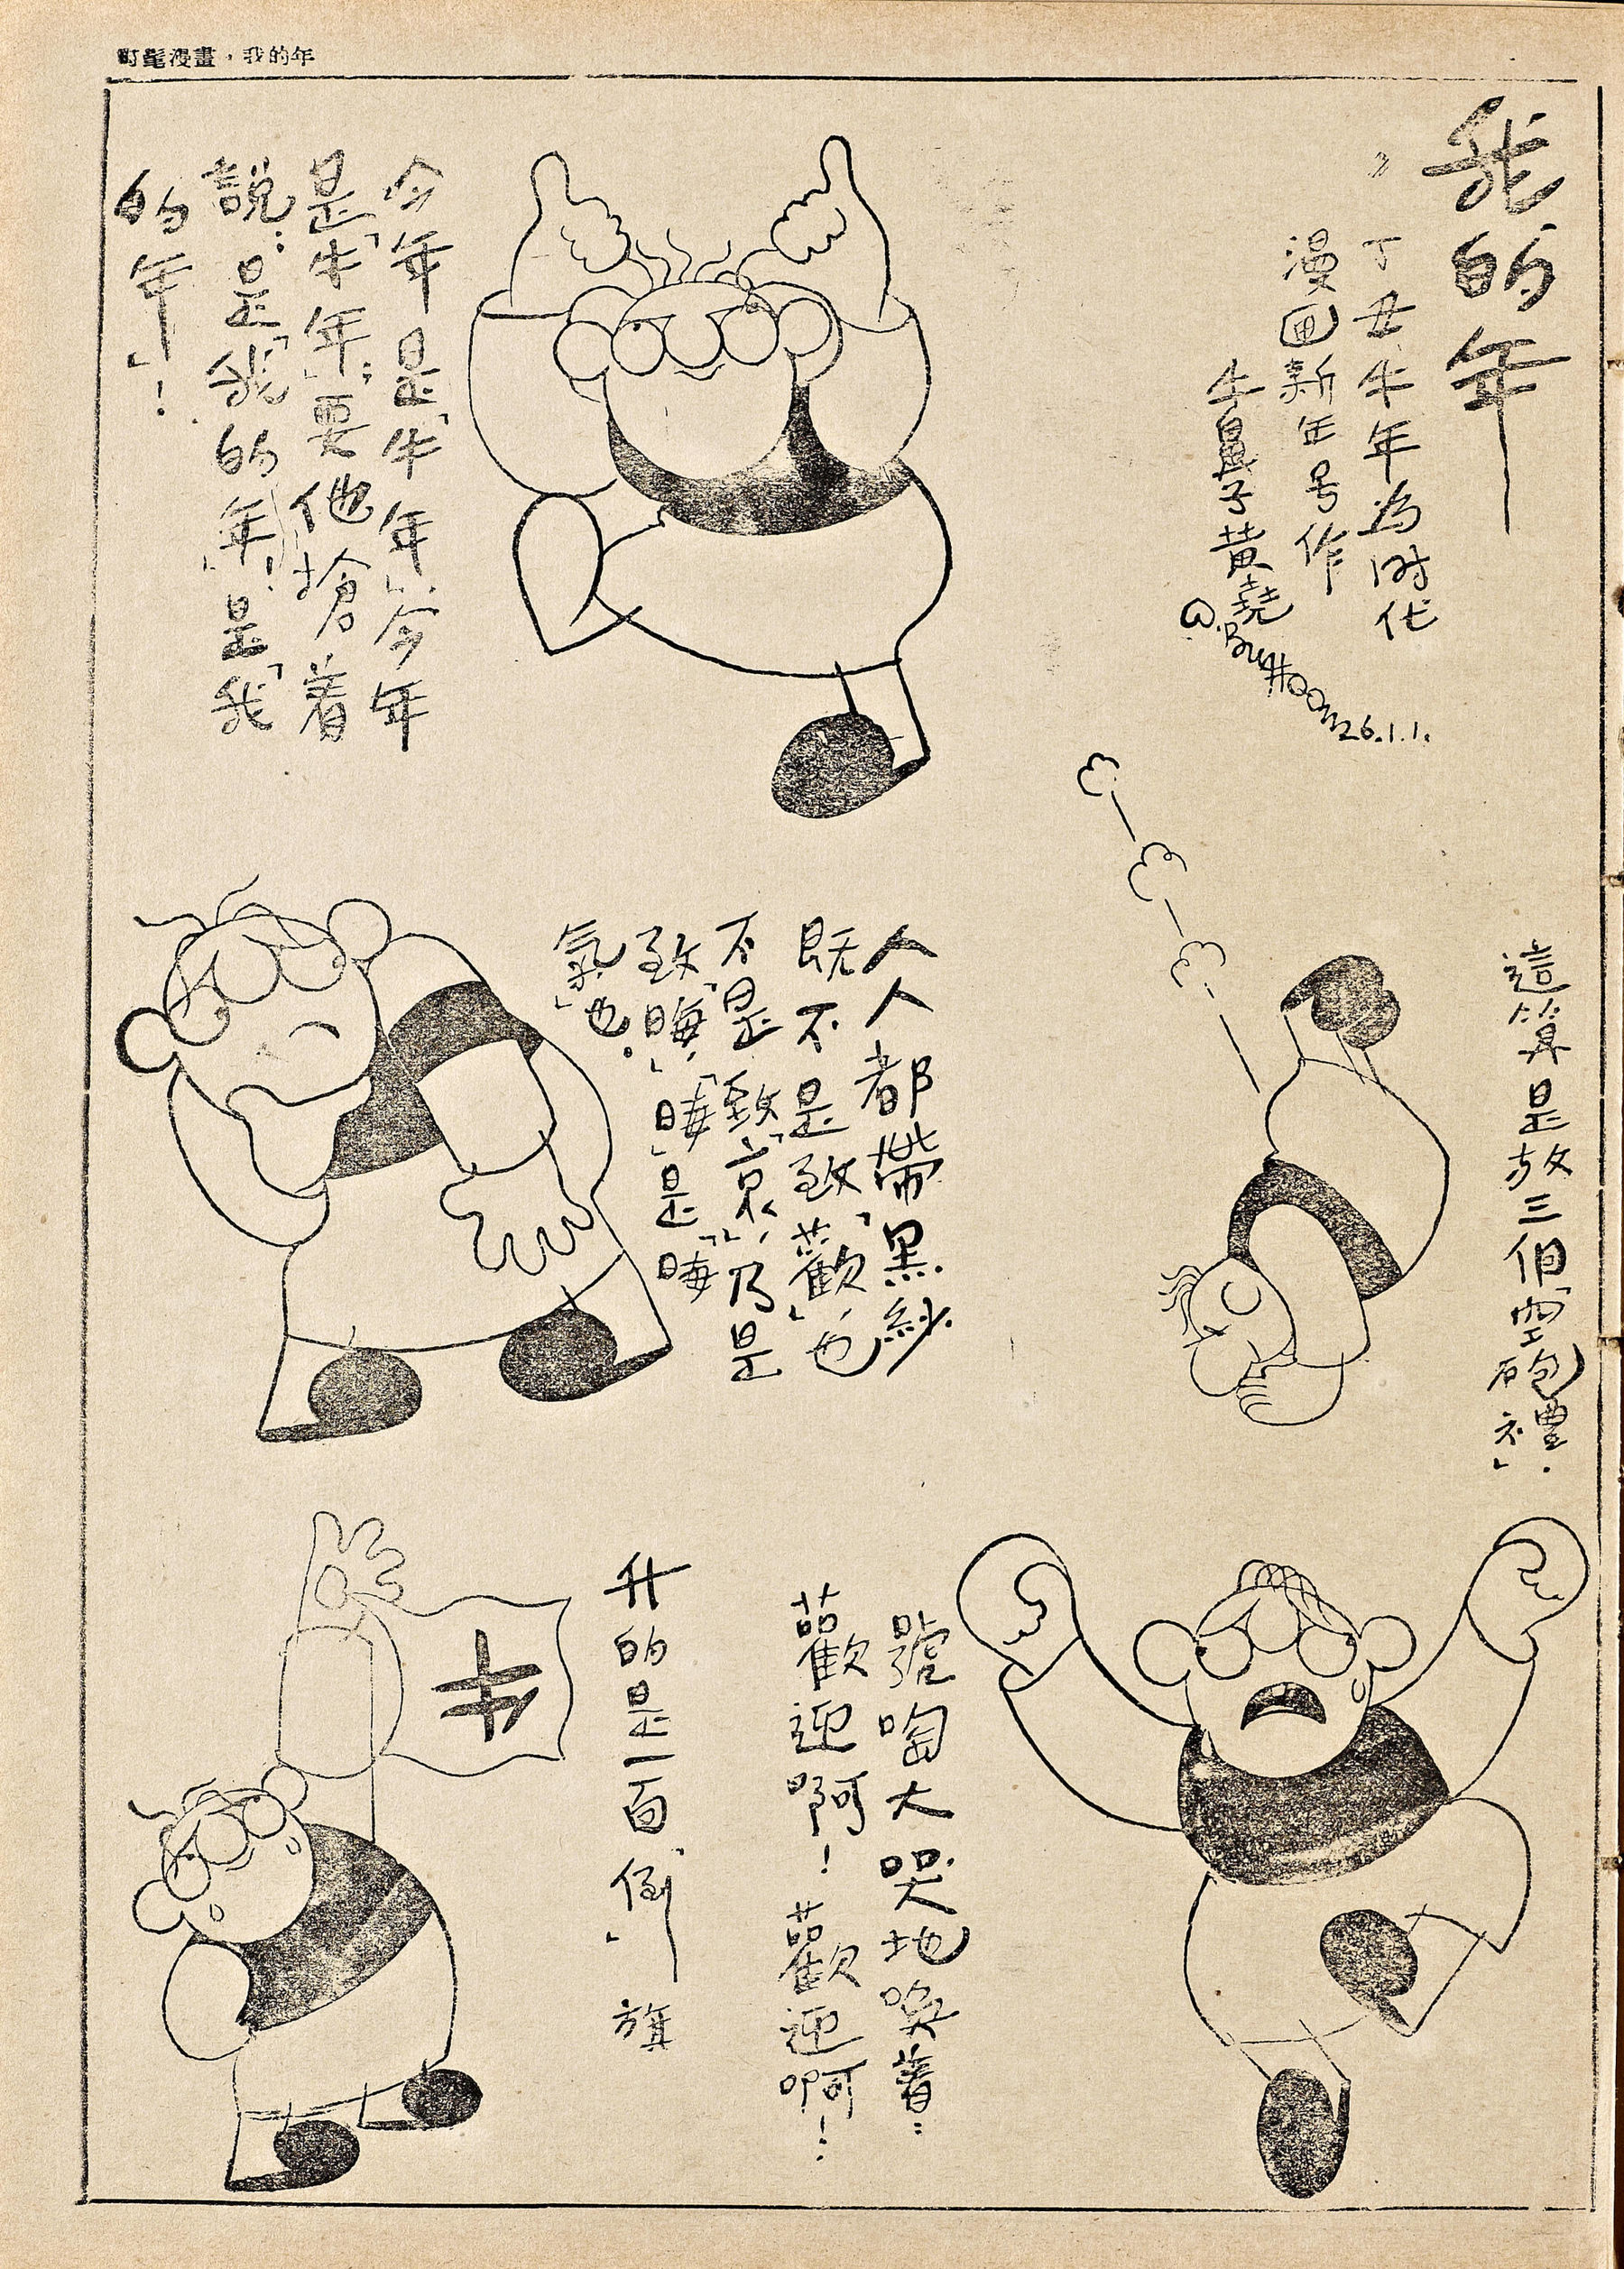 時代漫畫·我的年
我的年
丁丑牛年為時代
漫画新年号作
牛鼻子黄堯
W.Buffoon 26.1.1.
今年是「牛年」!今年
是「牛年」;要他搶着
說:是「我的年」!是「我
的年」!
這算是放三個「空砲禮」.
人人都帶黑紗.
既不是致「歡」,也
不是「致哀」,乃是
致「晦」,「晦」是「晦
氣」也.
號啕大哭地喚着:
歡迎啊!歡迎啊!
升的是一百「倒」旗
牛